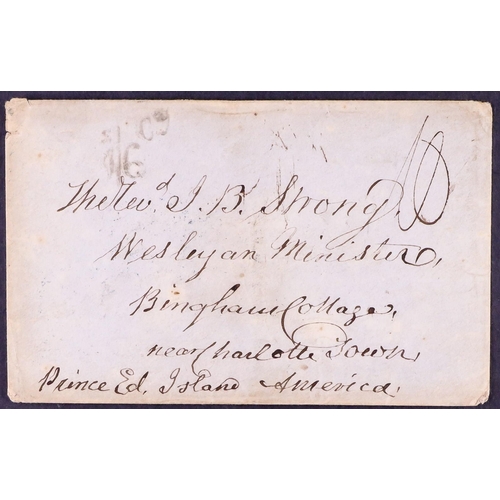 The Rev.d J. B. Strong,
Wesleyan Minister,
Bingham Cottage,
near Charlotte Town,
Prince Ed, Island America,